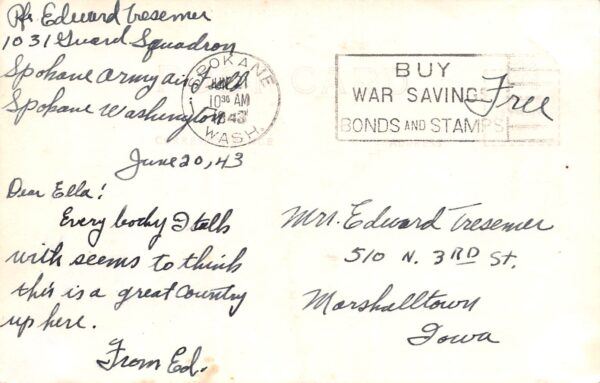 Pfc Edward Tresemer
1031 Guard Squadron
Spokane Army Air Field
Spokane Washington
June 20, 43
Dear Ella!
Every body I talk
with seems to think
this is a great country
up here.
From Ed.
SPOKANE
JUN 21
10 30 AM
1943
WASH.
BUY
WAR SAVINGS
BONDS AND STAMPS
Free
Mrs. Edward Tresemer
510 N. 3RD St.
Marshalltown
Iowa